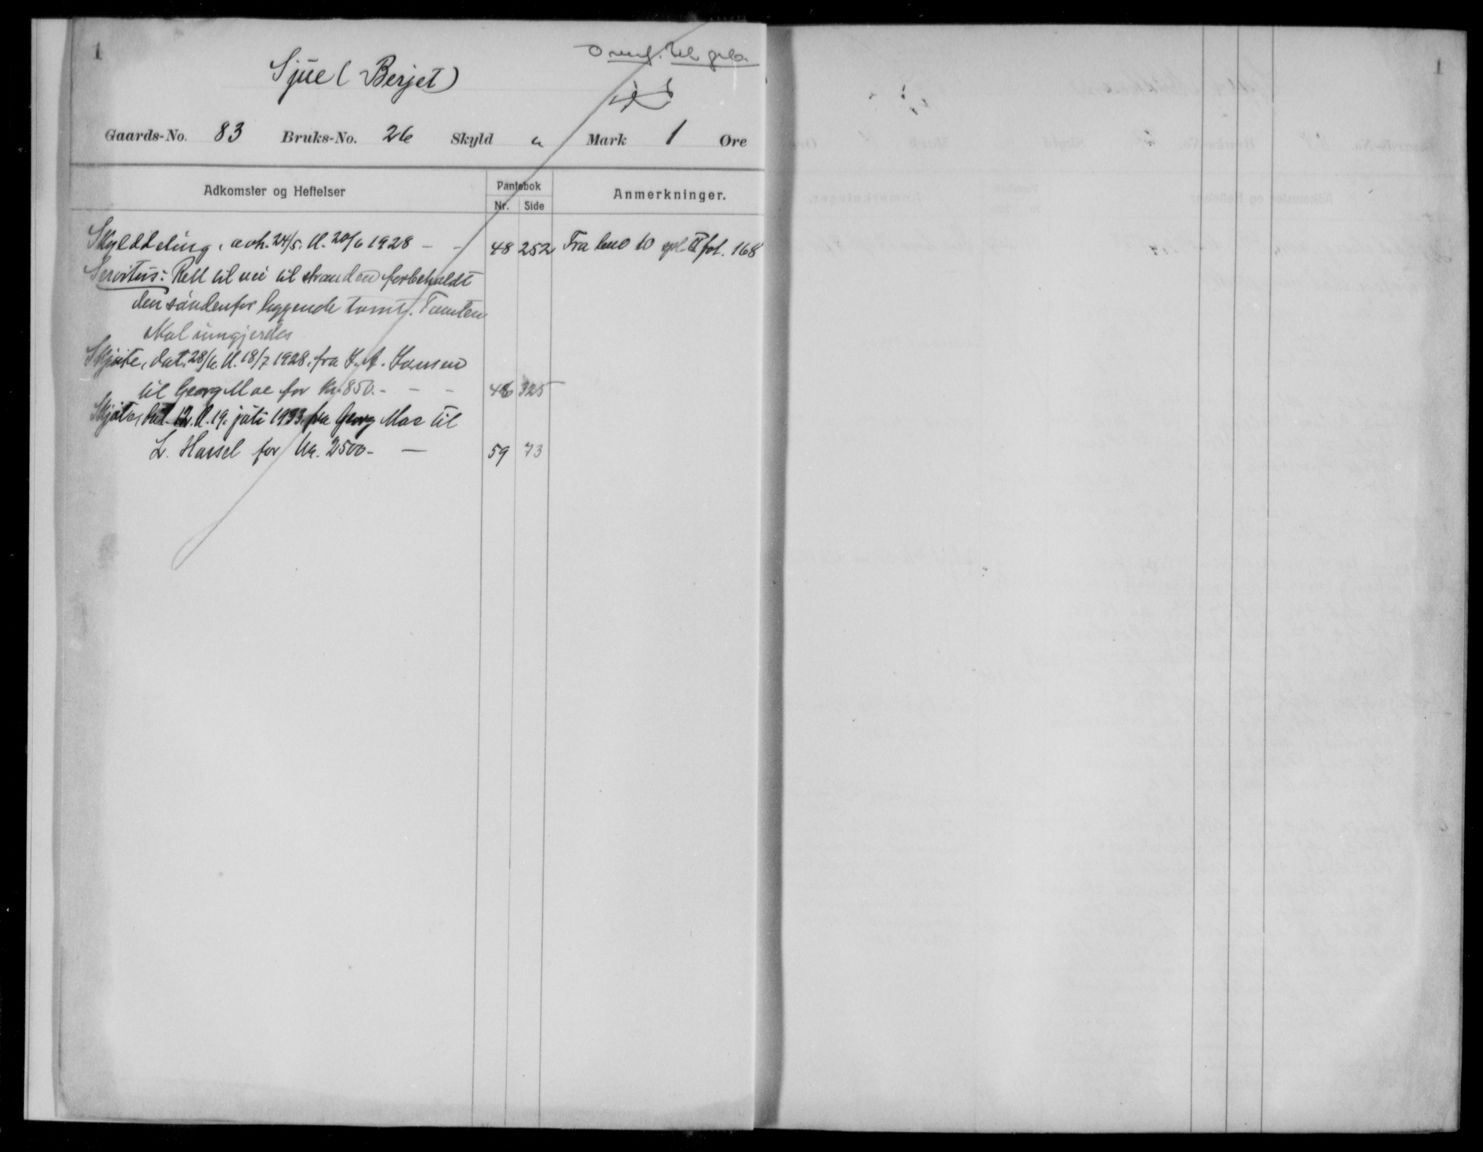 1
Overf. til grb.
Sjue ( Berjet )
Gaards-No. 83 Bruks-No. 26 Skyld " Mark 1 Øre
Adkomster og Heftelser Pantebok Anmerkninger.
Nr. Side
Skylddeling, avh. 24/5. tl. 20/6 1928 — - 48 252 Fra bno 10 gpl II fol. 168
Servitus: Rett til vei til stranden forbeholdt
den søndenfor liggende tomt. Tomten
skal inngjerdes
Skjøte, dat. 28/6 tl. 18/7 1928, fra Jansen
til Georg Moe for kr. 850.- - - 325
Skjøte, dat. 12. tl. 19. juli 1933 fra Georg Moe til
L. Hassel for kr. 2500.- — 59 73
1